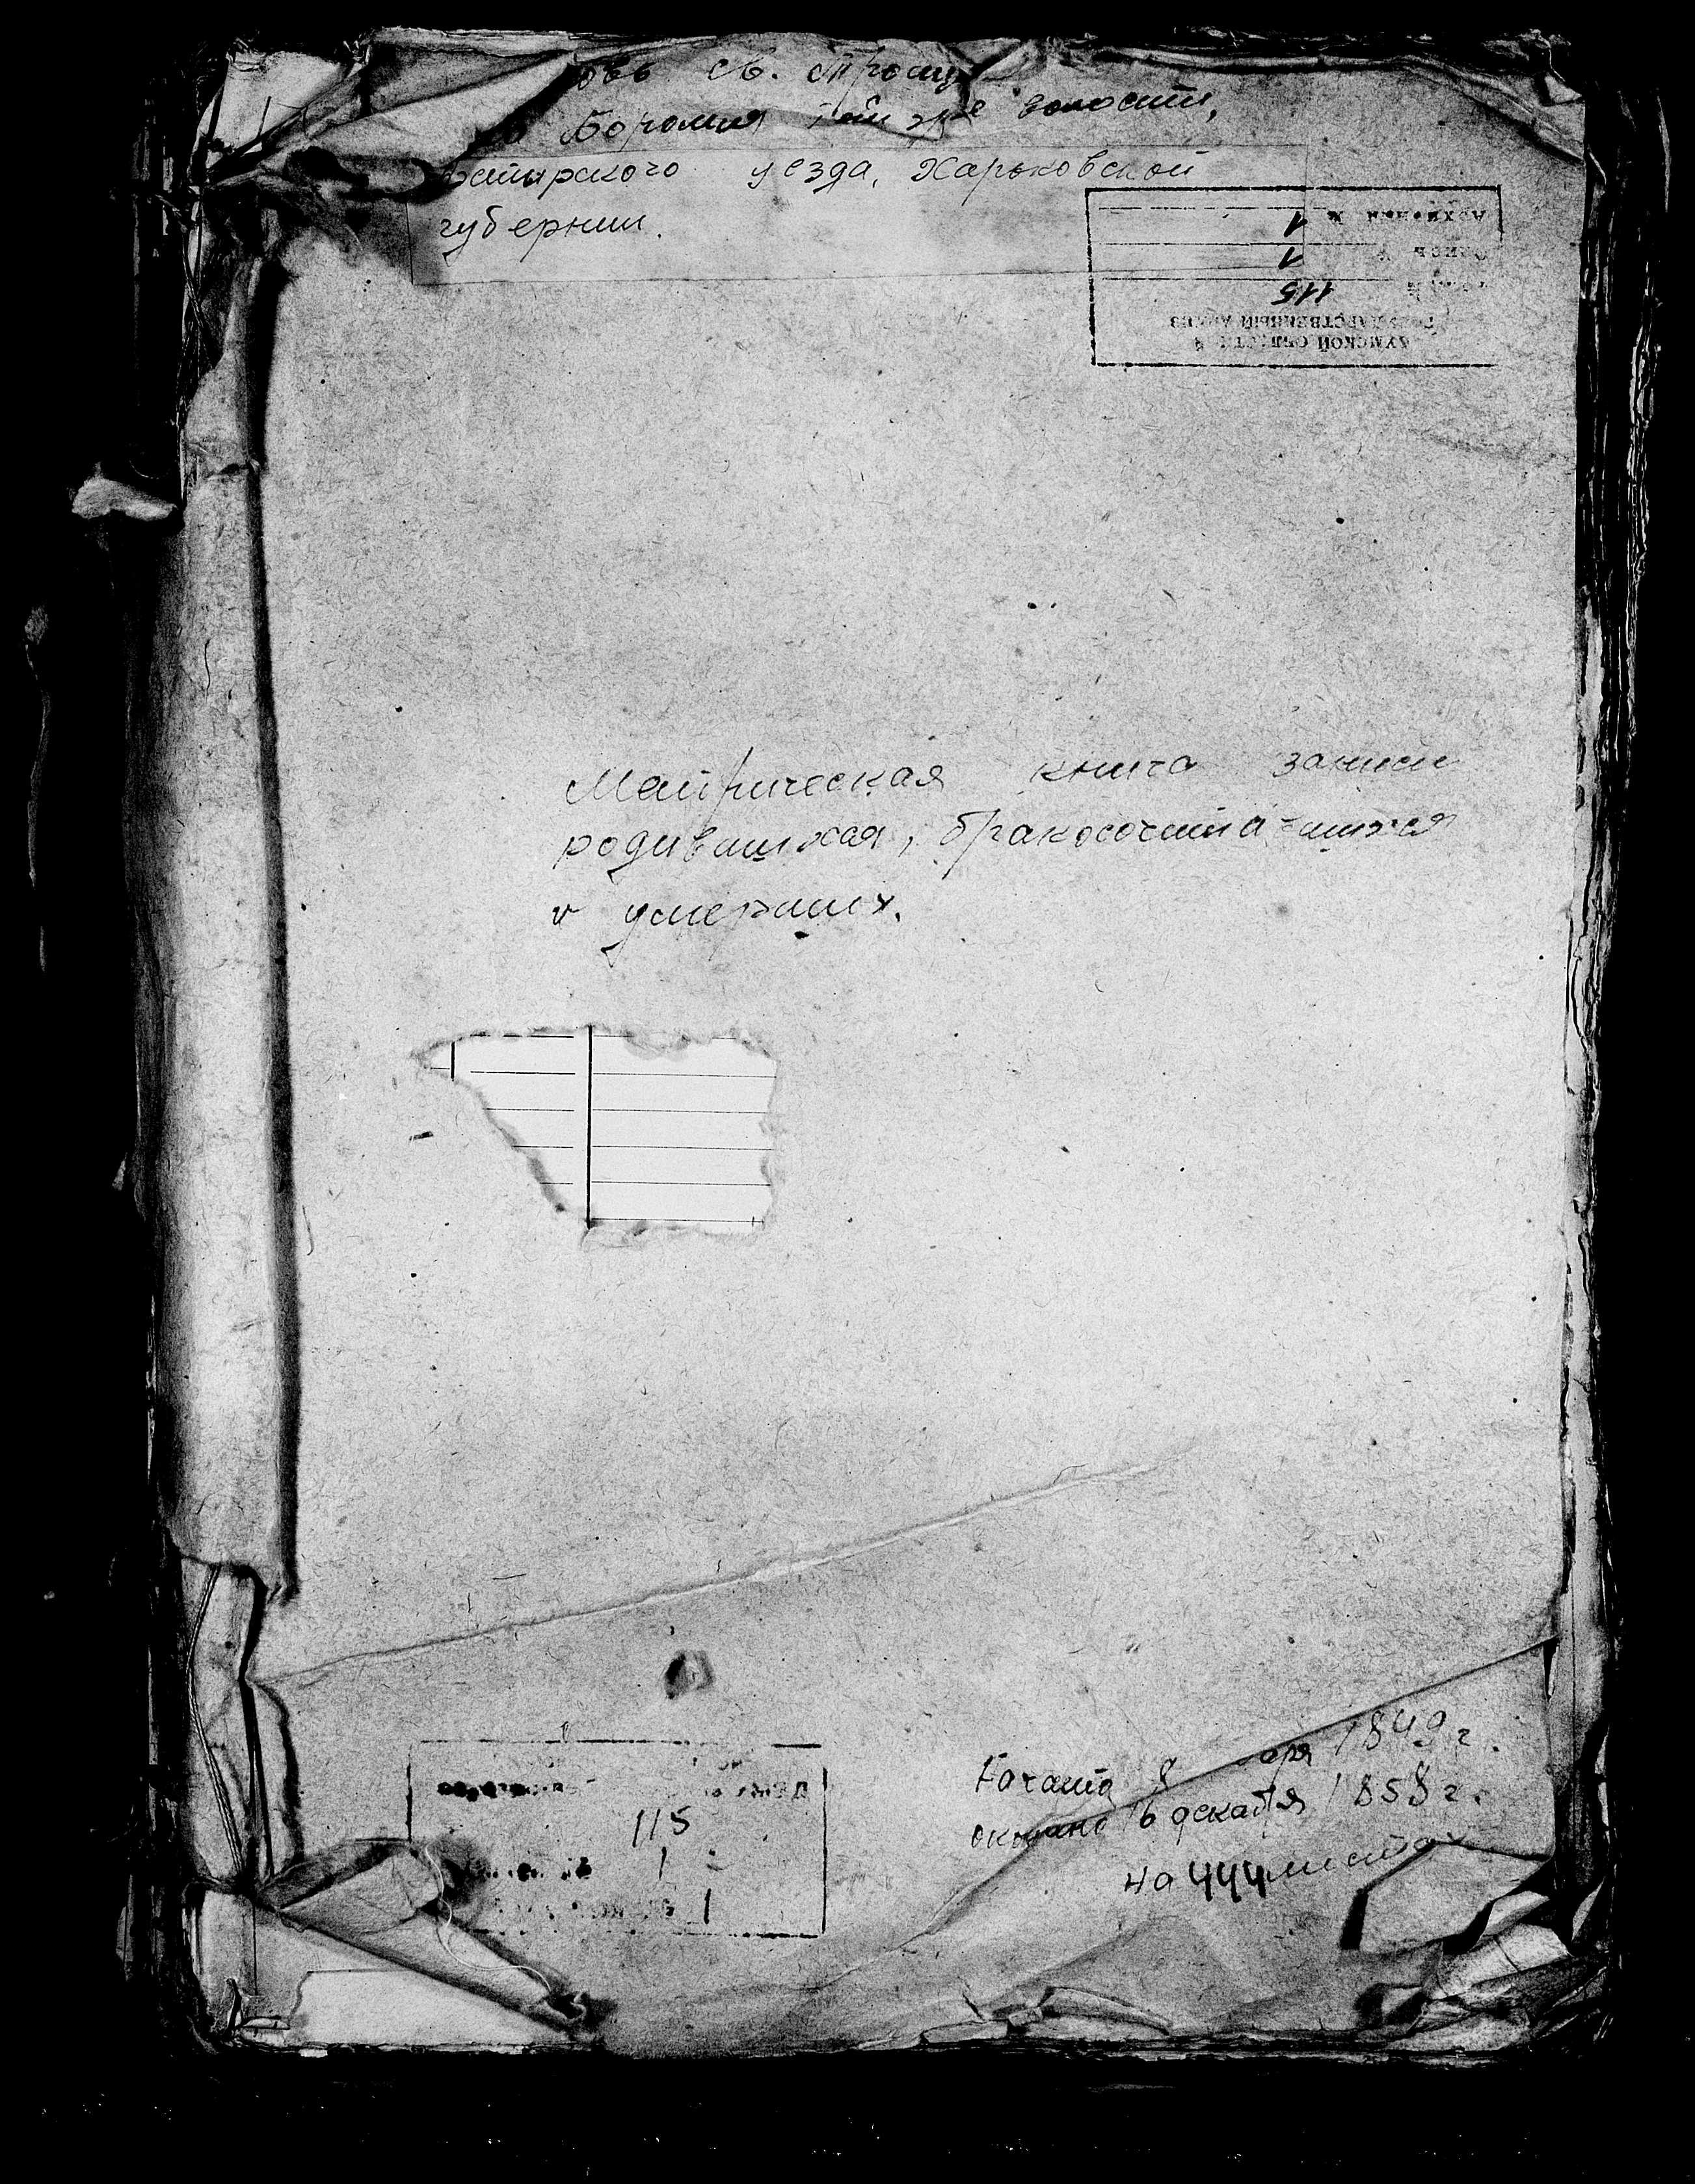 овь св. Троиц
Боромля же волости,
ахтырского уезда, Харьковской
губернии.
Архивный №
1
Опись №
1
115
ГОСУДАРСТВЕННЫЙ АРХИВ
СУМСКОЙ ОБЛАСТИ
Метрическая книга записи
родившихся, бракосочета-шихся
и умерших.
115
1
1
Начата 8 аря 1849 г.
окончено 16 декабря 1858 г.
на 444 листах